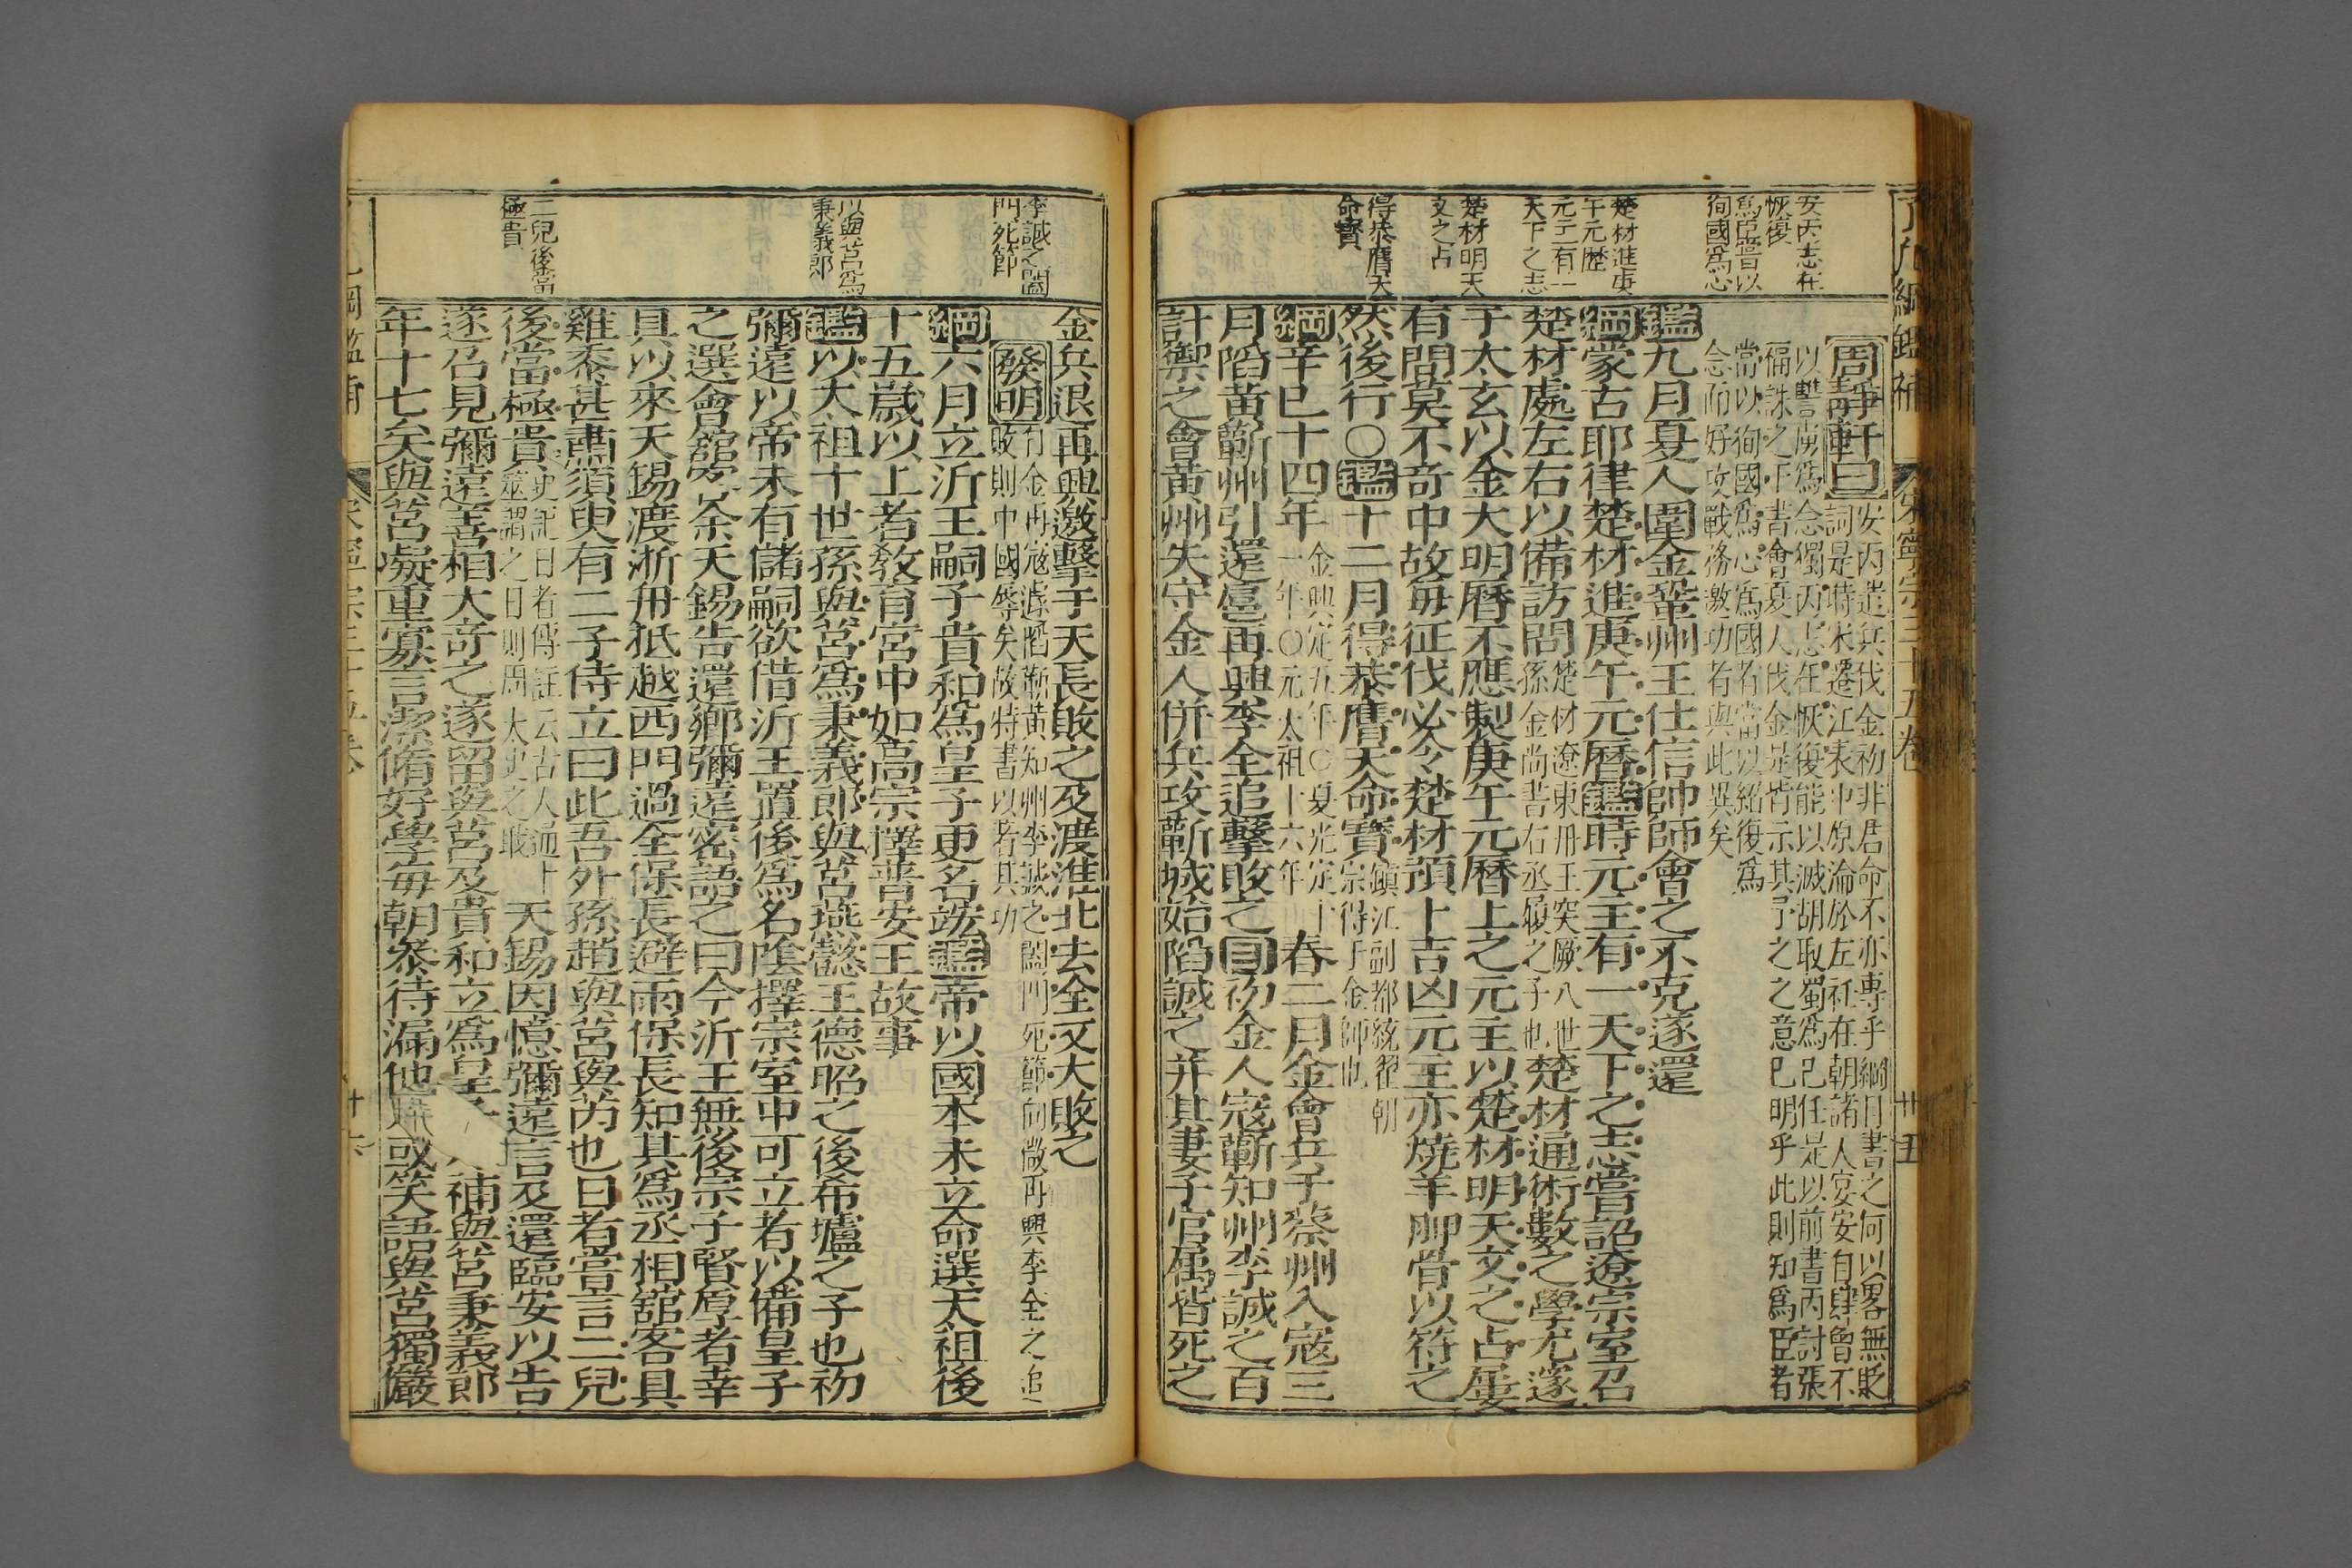 了凡綱鑑補
宋寧宗三十五卷
卅五
安丙志在
恢復
爲臣當以
徇國爲心
楚材進庚
午元歷
元主有一
天下之志
楚材明天
文之占
得恭膺天
命寶
周靜軒曰
安丙遣兵伐金初非君命不亦專乎綱目書之何以畧無貶
詞是時宋遷江表中原淪於左衽在朝諸人宴安自肆曾不
以讐虜爲念獨丙志在恢復能以滅胡取蜀爲己任是以前書丙討張
福誅之下書會夏人伐金是皆示其予之之意已明乎此則知爲臣者
當以徇國爲心爲國者當以紹復爲
念而好攻戰務邀功者與此異矣
鑑九月夏人圍金鞏州王仕信帥師會之不克遂還
綱蒙古耶律楚材進庚午元曆鑑時元主有一天下之志嘗詔遼宗室召
楚材處左右以備訪問楚材遼東丹王突厥八世孫金尚書右丞履之子也楚材通術數之學尤邃
于太玄以金大明曆不應製庚午元曆上之元主以楚材明天文之占屡
有問莫不奇中故每征伐必令楚材預卜吉凶元主亦燒羊胛骨以符之
然後行〇鑑十二月得恭膺天命寶鎮江副都統翟朝宗得于金師也
綱辛巳十四年金興定五年〇夏光定十一年〇元太祖十六年春二月金會兵于蔡州入寇三
月陷黄蘄州引還扈再興李全追擊敗之目初金人寇蘄知州李誠之百
計禦之會黄州失守金人併兵攻蘄城始陷誠之并其妻子官属皆死之
李誠之闔
門死節
以與莒爲
秉義郎
二兒後當
極貴
金兵退再興邀擊于天長敗之及渡淮北去全又大敗之
發明
綱六月立沂王嗣子貴和爲皇子更名竑鑑帝以國本未立命選太祖後
十五歲以上者敎育宮中如高宗擇普安王故事
鑑以太祖十世孫與莒爲秉義郎與莒燕懿王德昭之後希瓐之子也初
彌遠以帝未有儲嗣欲借沂王置後爲名陰擇宗室中可立者以備皇子
之選會舘客余天錫告還鄉彌遠密語之曰今沂王無後宗子賢厚者幸
具以來天錫渡浙舟抵越西門過全保長避雨保長知其爲丞相舘客具
雞黍甚肅須臾有二子侍立曰此吾外孫趙與莒與芮也日者嘗言二兒
後當極貴史記日者傳註云古人通卜筮謂之日則周太史之職天錫因憶彌遠言及還臨安以告
遂召見彌遠善相大奇之遂留與莒及貴和立爲皇子補與莒秉義郎
年十七矣與莒處重寡言潔脩好學每朝參待漏他或笑語與莒獨儼